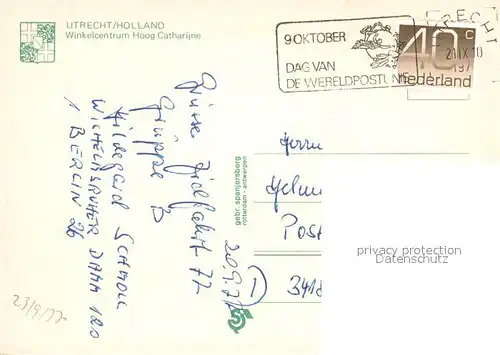 UTRECHT/HOLLAND
Winkelcentrum Hoog Catharijne
9 OKTOBER
DAG VAN
DE WERELDPOSTUNIE
UTRECHT
21.IX.10
197
40c
nederland
Grüsse Zielfahrt 77
Gruppe B
Hildegard Schmoll
Wilhelmsruher Damm 120
1 Berlin 26
20.9.77
gebr. spanjersberg
rotterdam - antwerpen
Herrn
Helmu
Post
D
3418
23/9/77
privacy protection
Datenschutz